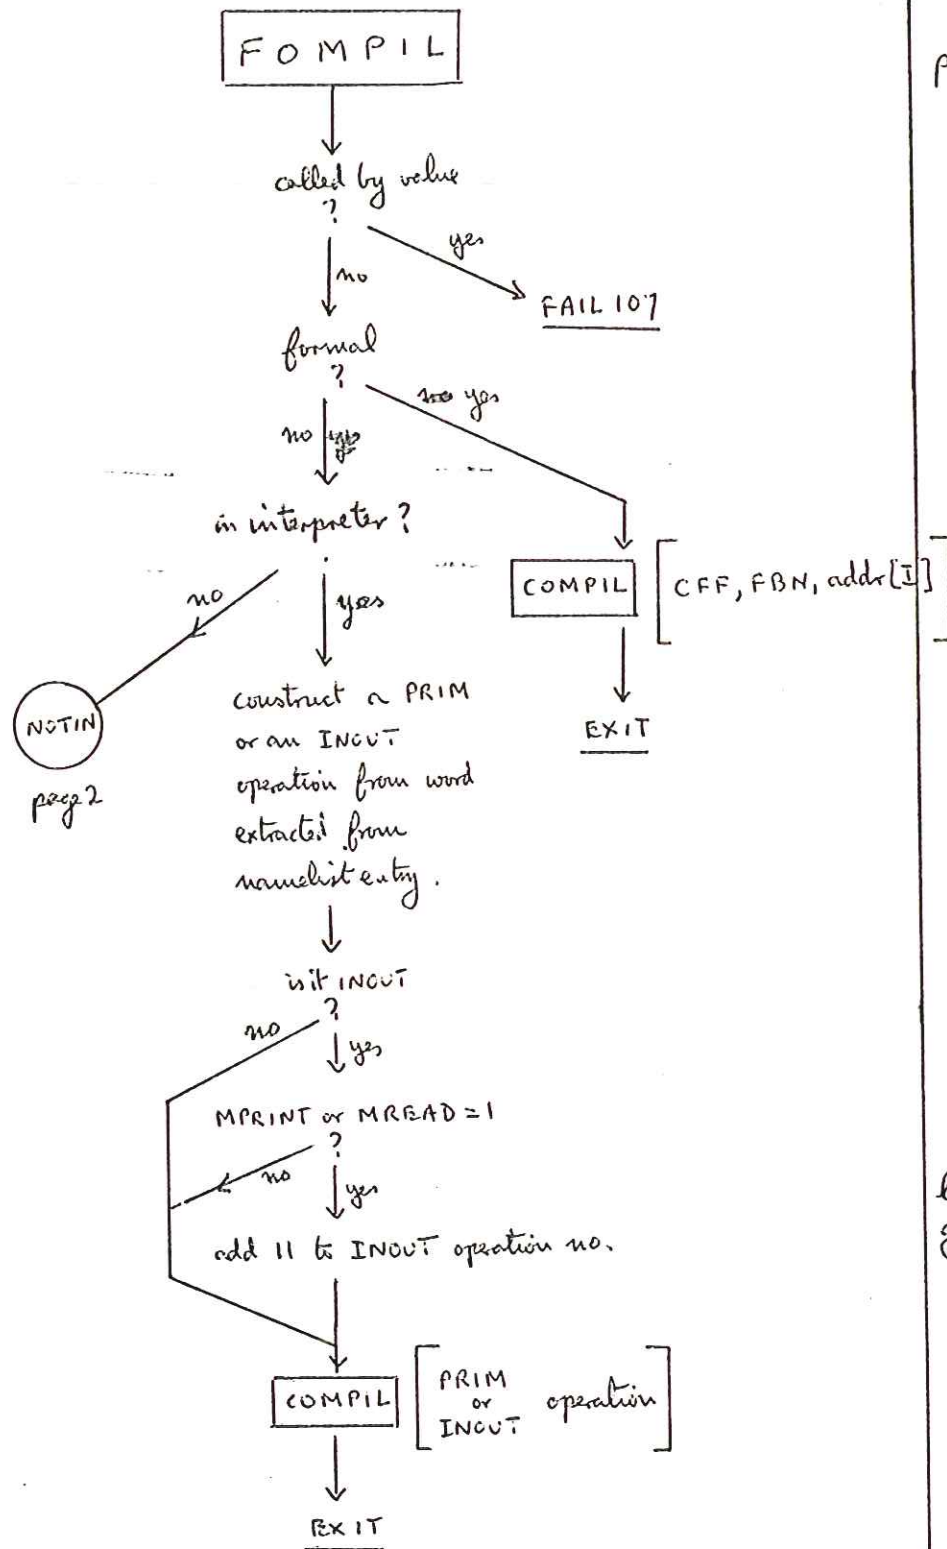 FOMPIL
called by value
?
yes
no
FAIL 107
formal
?
no yes
no
in interpreter ?
no
yes
COMPIL [CFF, FBN, addr[I]]
EXIT
NOTIN
page 2
construct a PRIM
or an INOUT
operation from word
extracted from
namelist entry.
is it INOUT
?
no
yes
MPRINT or MREAD = 1
?
no
yes
add 11 to INOUT operation no.
COMPIL [PRIM
or
INOUT operation]
EXIT